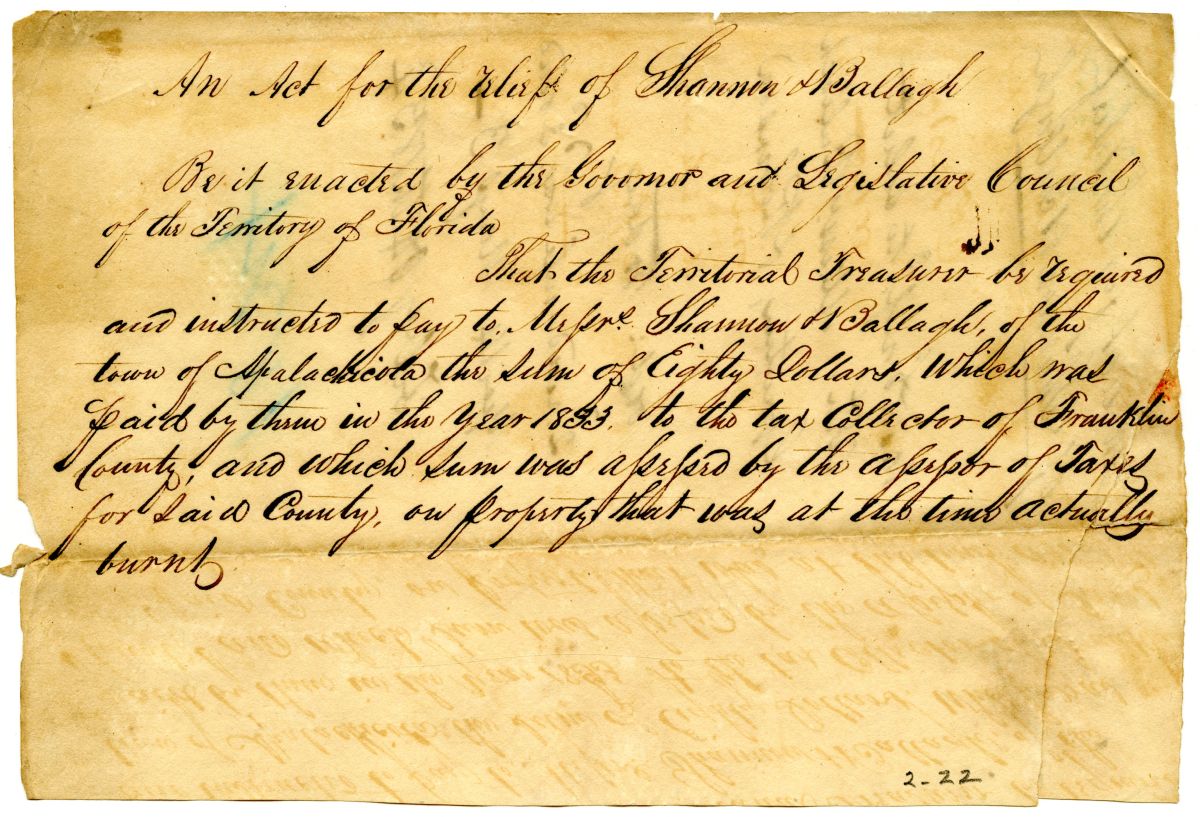 An Act for the relief of Shannon & Ballagh
Be it enacted by the Governor and Legislative Council
of the Territory of Florida
That the Territorial Treasurer be required
and instructed to pay to Messrs. Shannon & Ballagh, of the
town of Apalachicola the sum of Eighty Dollars, Which was
paid by them in the Year 1833. to the tax Collector of Franklin
County, and which sum was assessed by the assessor of Taxes
for said County, on property that was at the time actually
burnt
2-22